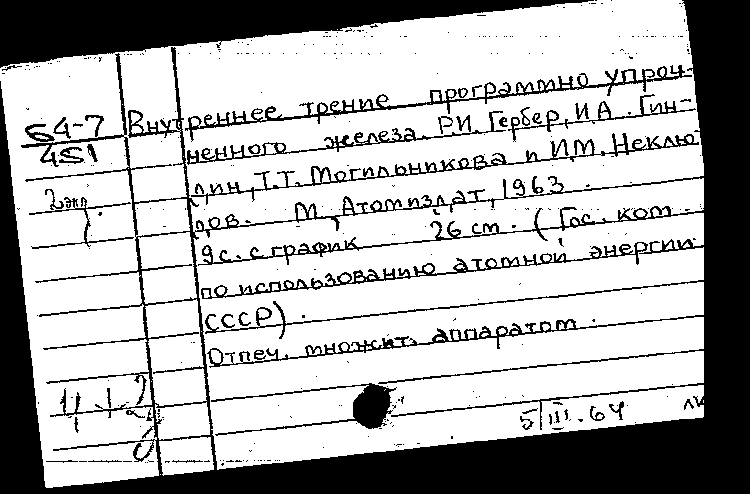 64-7
451
2 экз.
Внутреннее трение программно упроч-
ненного железа. Р.И. Гербер, И.А. Гин-
дин, Т.Т. Могильникова и И.М. Неклю-
дов. М., Атомиздат, 1963.
9 с. с график 26 см. (Гос. ком.
по использованию атомной энергии
СССР).
Отпеч. множит. аппаратом.
4+2
5/III.64